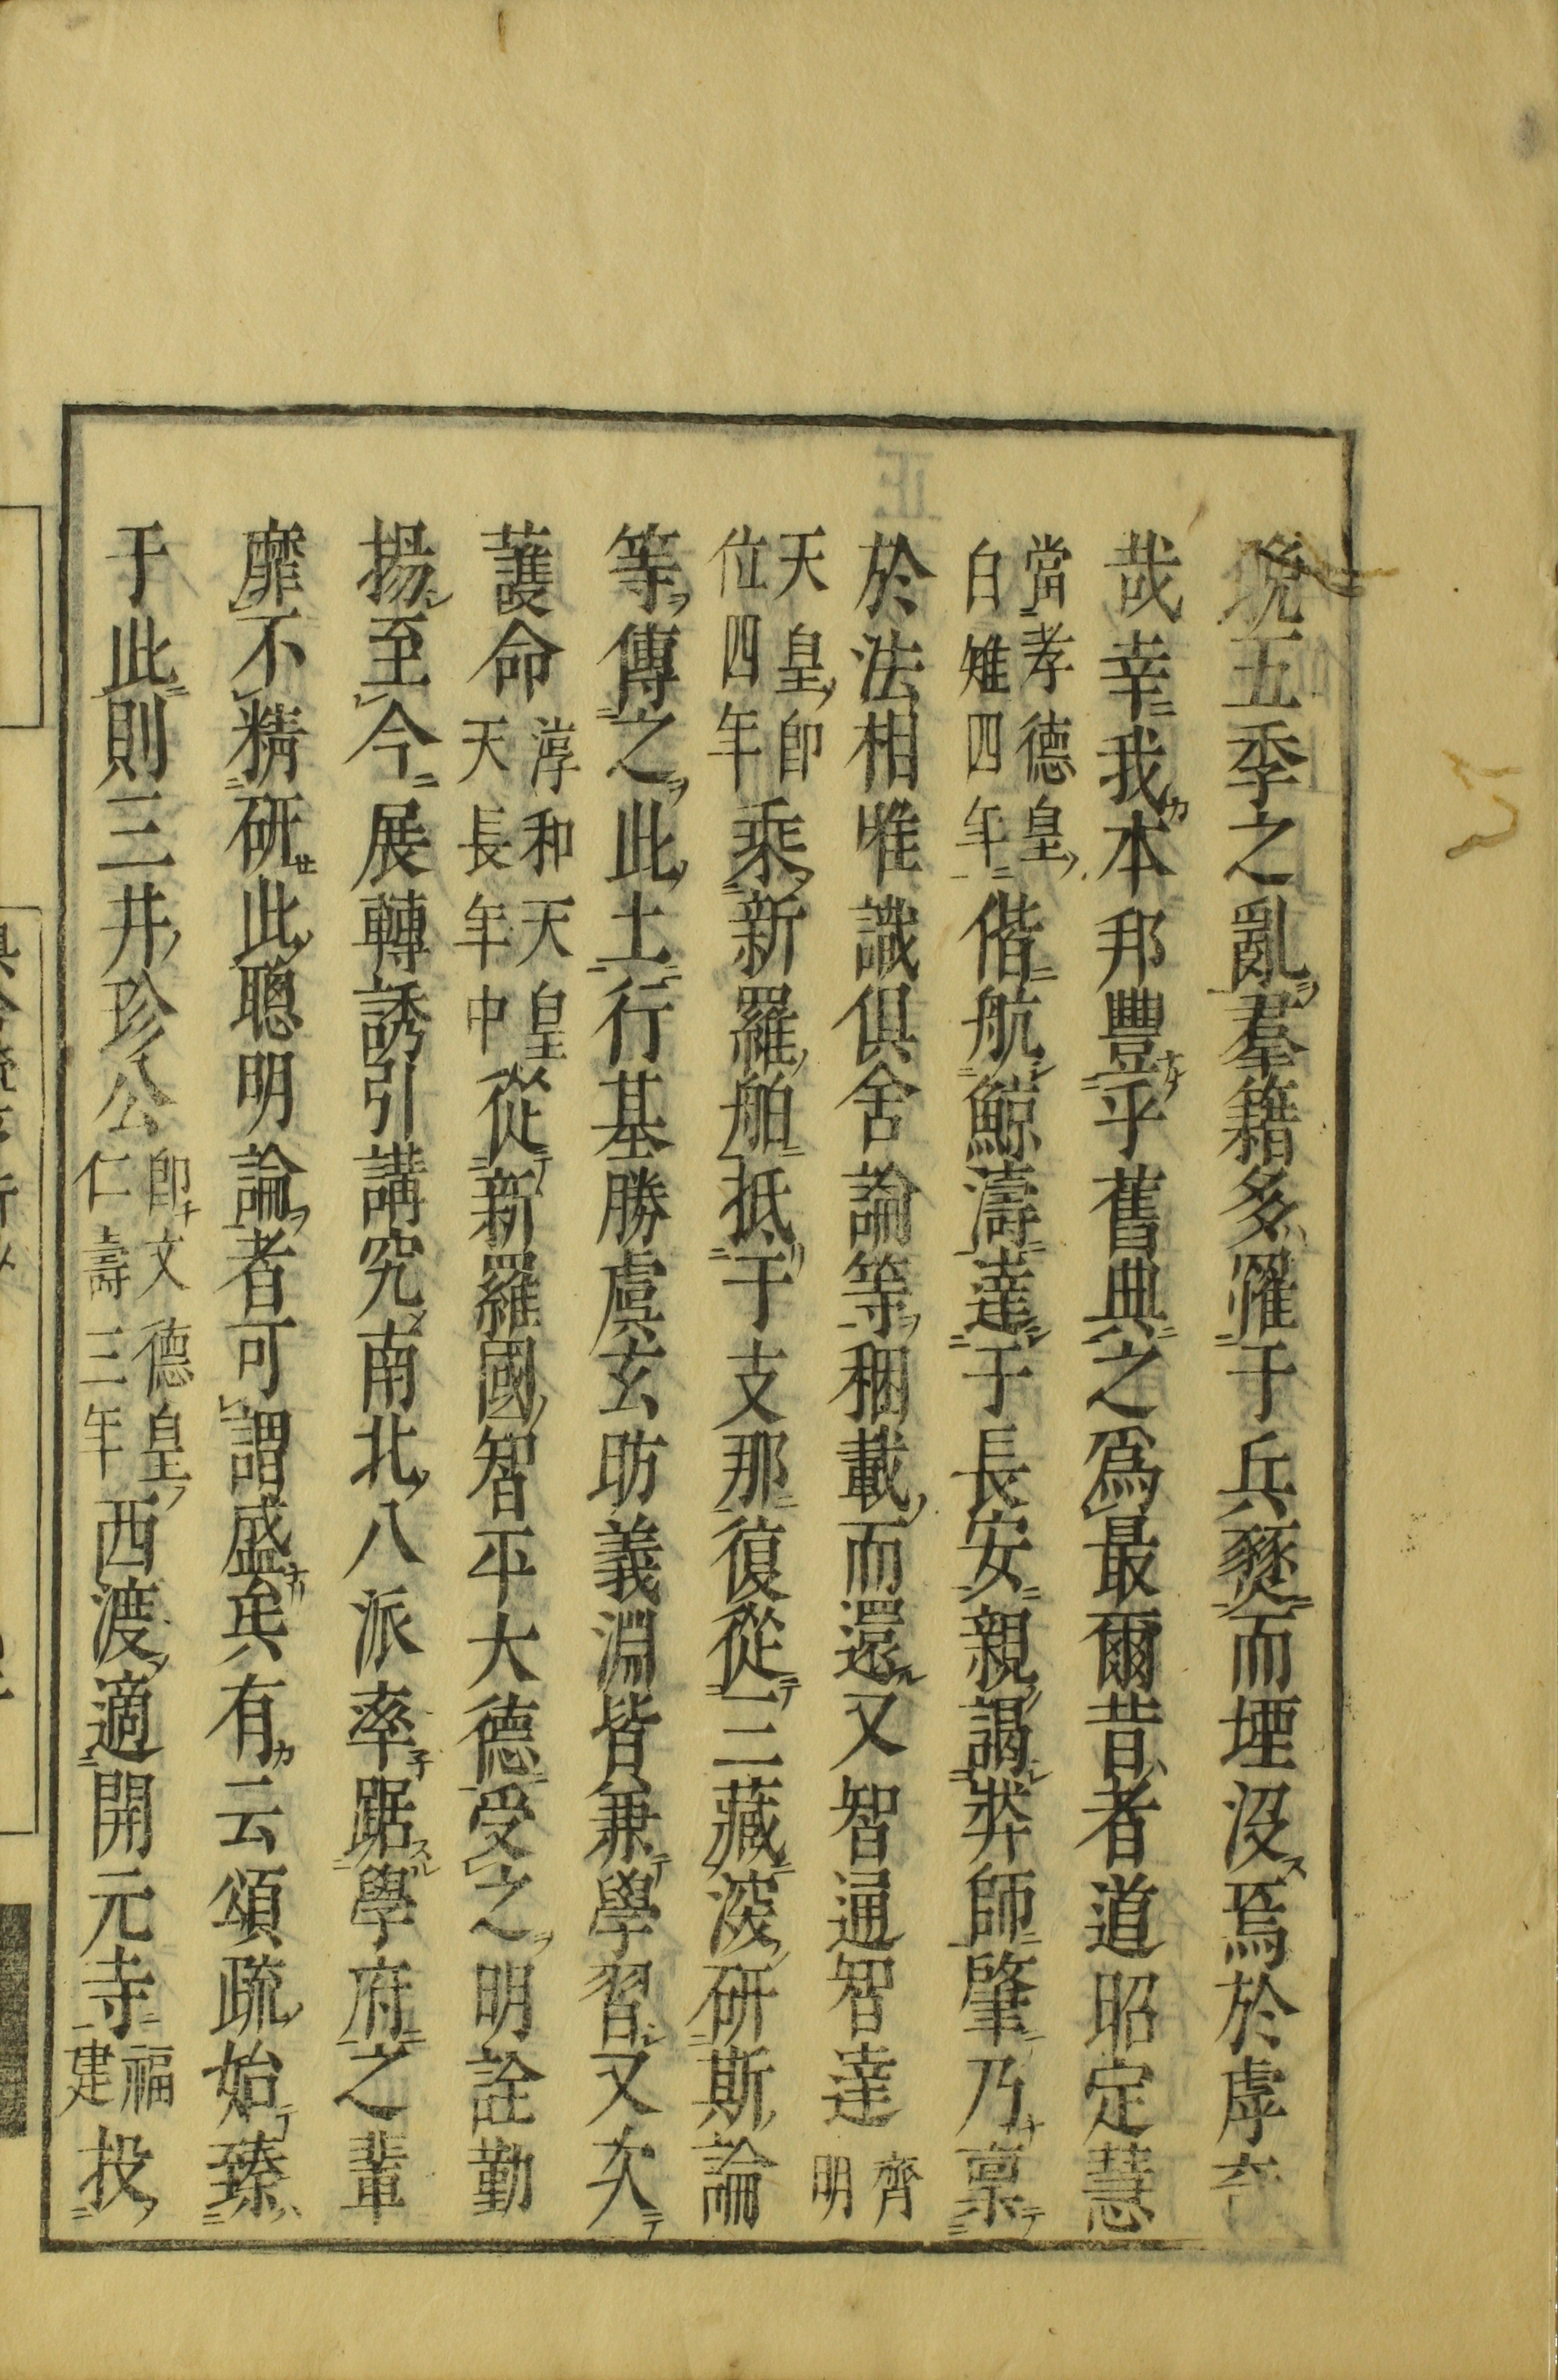 晚五季之亂羣籍多罹于兵燹而堙沒焉於虖夲
哉幸我本邦豐乎舊典之爲最爾昔者道昭定慧
當孝德皇白雉四年偕航鯨濤達于長安親謁弉師肇乃禀
於法相唯識俱舍論等稛載而還又智通智達齊明
天皇卽位四年乘新羅舶抵于支那復從三藏浚研斯論
等傳之此土行基勝虞玄昉義淵皆兼學習又次
護命淳和天皇天長年中從新羅國智平大德受之明詮勤
揚至今展轉誘引講究南北八派率踞學府之輩
靡不精研此聰明論者可謂盛矣有云頌疏始臻
于此則三井珍公卽文德皇仁壽三年西渡適開元寺福建投